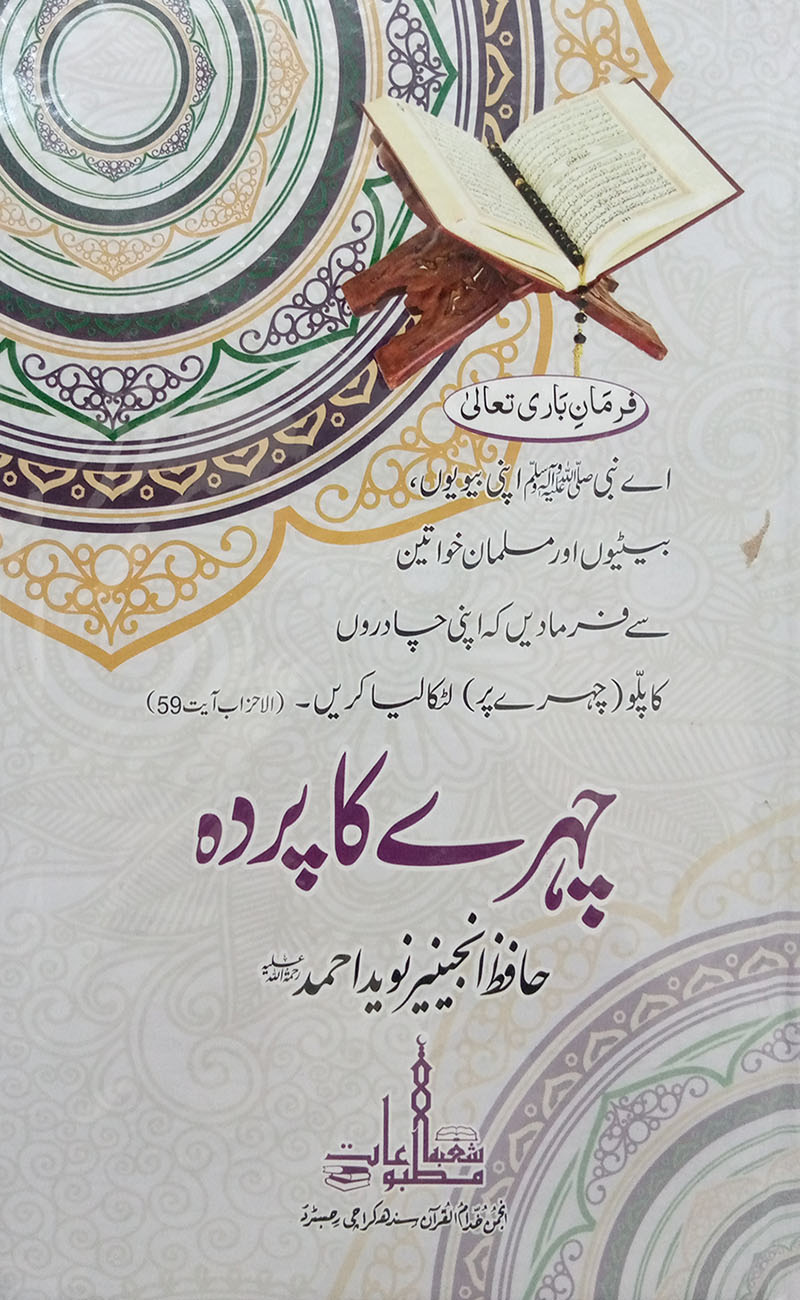 فرمانِ باری تعالیٰ
اے نبی صلی اللہ علیہ وآلہ وسلم اپنی بیویوں،
بیٹیوں اور مسلمان خواتین
سے فرمادیں کہ اپنی چادروں
کا پلّو (چہرے پر) لٹکا لیا کریں۔ (الاحزاب آیت 59)
چہرے کا پردہ
حافظ انجینیر نوید احمد رحمۃ اللہ علیہ
شعبہ مطبوعات
انجمن خدّام القرآن سندھ کراچی رجسٹرڈ